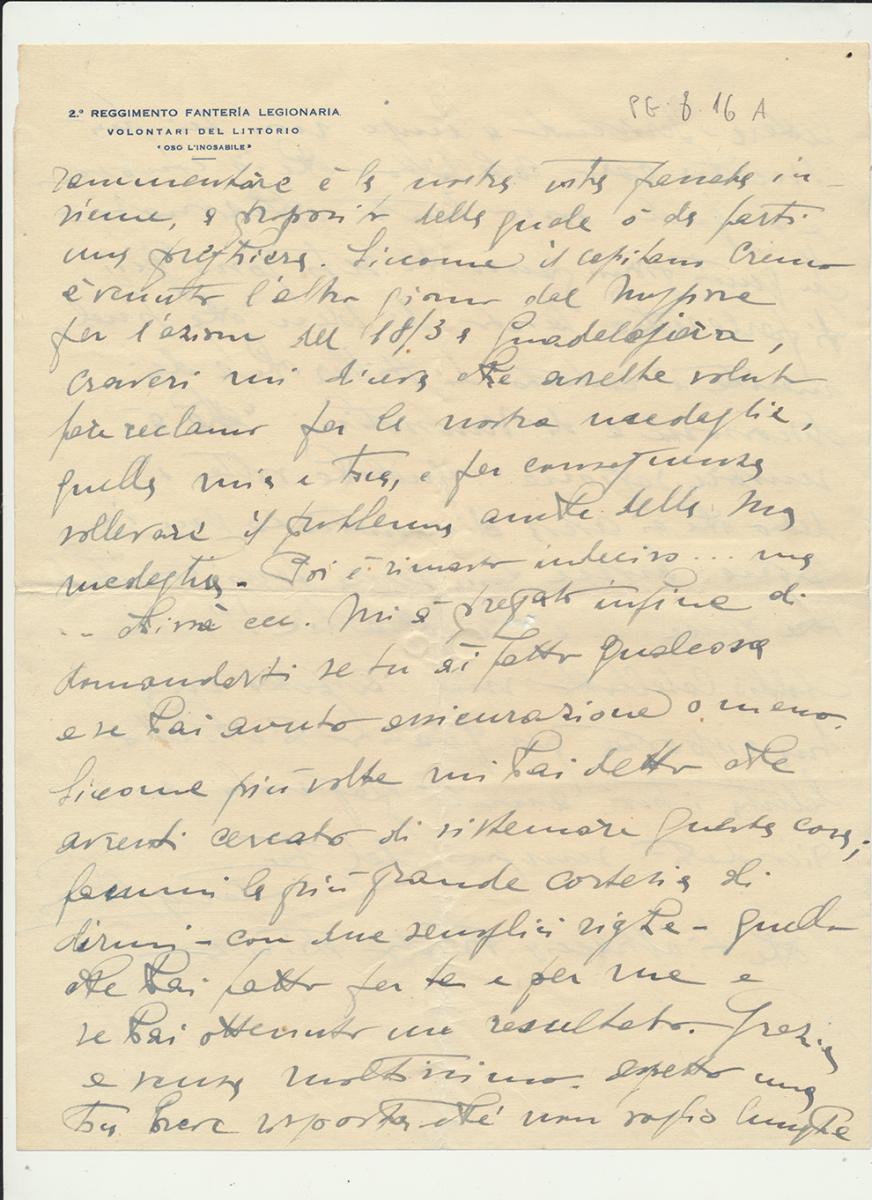 2.º REGGIMENTO FANTERÍA LEGIONARIA
VOLONTARI DEL LITTORIO
"OSO L'INOSABILE"
PG. 8 16 A
rammentare è la nostra vista passata in-
sieme, a proposito della quale ò da farti
una preghiera. Siccome il capitano Cremo
è venuto l'altro giorno dal
per l'azione del 18/3 a Guadalajara,
Craveri mi diceva che avrebbe voluto
fare reclamo per la nostra medaglia,
quella mia e tua, e per conseguenza
sollevare il problema anche della sua
medaglia. Poi è rimasto indeciso... ma
.. chissà ecc. Mi à pregato infine di
domandarti se tu ài fatto qualcosa
e se hai avuto assicurazione o meno.
Siccome più volte mi hai detto che
avresti cercato di sistemare questa cosa,
fammi la più grande cortesia di
dirmi - con due semplici righe - quello
che hai fatto per te e per me e
se hai ottenuto un resultato. Grazie
e scusa moltissimo. Aspetto una
tua breve risposta chè non voglio lunghe